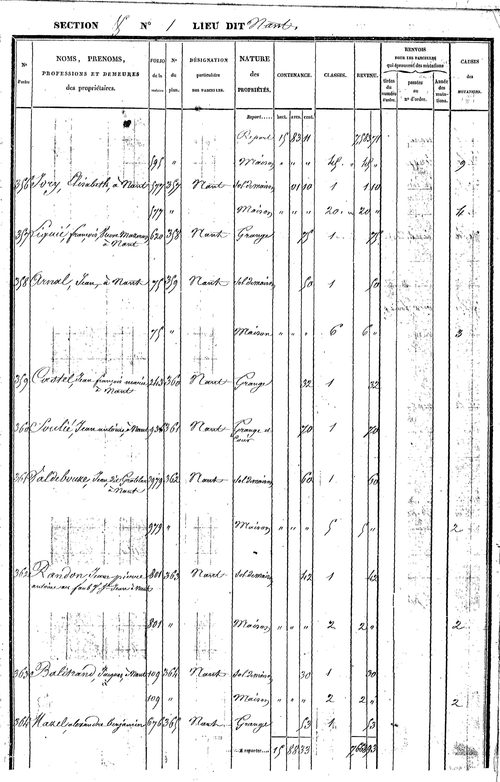 SECTION N° 1 LIEU DIT Nant
N° d'ordre
NOMS, PRENOMS, PROFESSIONS ET DEMEURES des propriétaires.
FOLIO de la
N° du plan.
DÉSIGNATION particulière DES PARCELLES.
NATURE des PROPRIÉTÉS.
CONTENANCE.
CLASSES.
REVENU.
RENVOIS POUR LES PARCELLES qui éprouvent des mutations
tirées du numéro d'ordre.
portées au N° d'ordre.
Année des mutations
CAUSES des MUTATIONS.
Report.... hect. ares. cent. fr. c.
Report 15 83 11 758 71
595 " Maison " " " 48 " 48 " 9
356 Elisabeth, à Nant 577 357 Nant Sol de maison 01 10 1 1 10
577 " Maison " " " 20 " 20 " 4
357 françois à Nant 620 358 Nant Grange 75 1 75
358 Arnal, Jean, à Nant 75 359 Nant Sol de maison 50 1 50
75 " Maison " " " 6 6 " 3
359 Jean françois marie à Nant 243 360 Nant Grange 32 1 32
360 Jean antoine, à Nant 361 Nant Grange et cour 70 1 70
361 Valdebouze, Jean à Nant 979 362 Nant Sol de maison 60 1 60
979 " Maison " " " 5 5 " 2
362 Randon, Jean pierre antoine au faub. St. Jean à Nant 801 363 Nant Sol de maison 42 1 42
801 " Maison " " " 2 2 " 2
363 Balitrand, à Nant 109 364 Nant Sol de maison 30 1 30
109 " Maison " " " 2 2 " 2
364 Mazel, alexandre benjamin 676 365 Nant Grange 53 1 53
A reporter... 15 88 33 93